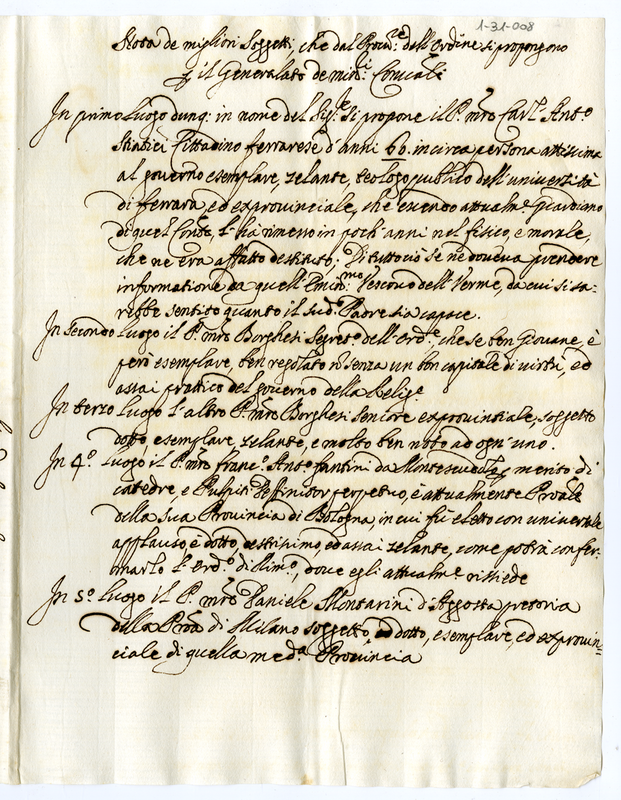 1-31-008
Nota de migliori Soggetti, che dal Procur.re dell'Ordine si propongono
p il Generalato de min.i Conv.ali
In primo luogo dunq: in nome del Sig.re si propone il P. mro Carl' Ant.o
Cittadino ferrarese d'anni 60. in circa persona attissima
al governo esemplare, zelante, teologo publico dell'università
di ferrara, ed exprovinciale, che essendo attualm.e Guardiano
di quel Con.to, l'ha rimesso in poch'anni nel fisico, e morale,
che ne era affatto destituto; Di tutto ciò se ne doveva prendere
informatione da quell'Emin.mo Vescovo dell'Verme, da cui si sa-
rebbe sentito quanto il sud.o Padre sia capace.
In secondo luogo il P. mro Borghesi Segret.o dell'Ord.e, che se ben Giovane, è
però esemplare, ben regolato nō senza un bon capitale di virtù, ed
assai prattico del governo della Relig.e
In terzo luogo l'altro P. mro Borghesi seniore exprovinciale, soggetto
dotto, esemplare, zelante, e molto ben noto ad ogn'uno.
In 4.o luogo il P. mro franc.o Ant.o fantini da merito di
catedre, e Pulpiti Deffinitor perpetuo, è attualmente Pro.ale
della sua Provincia di Bologna, in cui fù eletto con universale
applauso, è dotto, destrissimo, ed assai zelante, come potrà confer-
marlo l' di Rim.o, dove egli attualm.e rissiede
In 5.o luogo il P. mro Daniele Montarini d'Aggosta pretoria
della Pro.a di Milano soggetto, dotto, esemplare, ed exprovin=
ciale di quella med.a Provincia